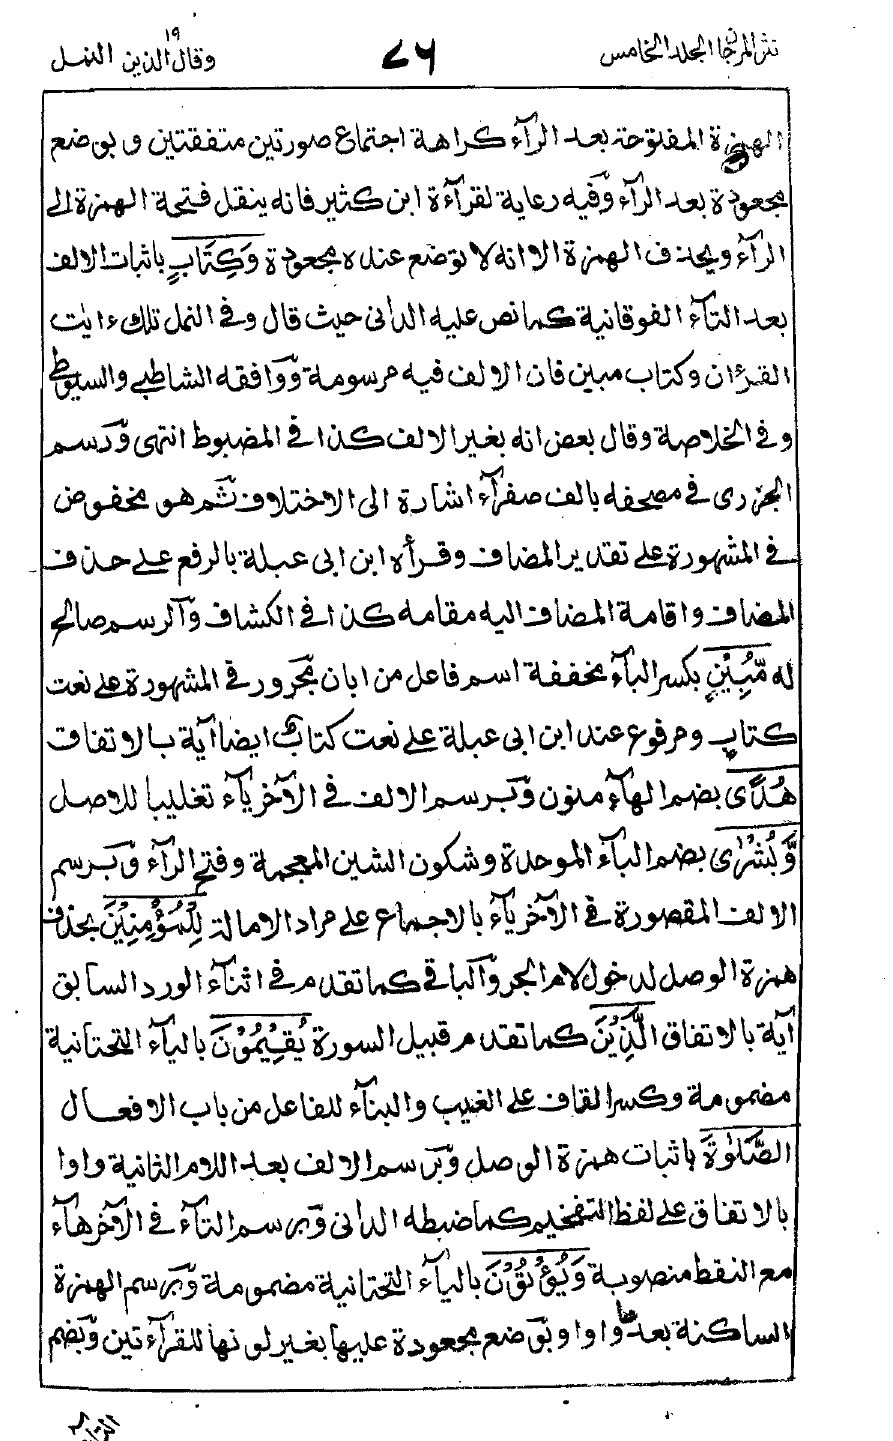 نثر المرجان الجلد الخامس
٧٤
وقال الذين ١٩ النمل
الهمزة المفتوحة بعد الرآء كراهة اجتماع صورتين متفقتين و بوضع
مجعودة بعد الرآء وّفيه رعاية لقرآءة ابن كثير فانه ينقل فتحة الهمزة الى
الرآء ويحذف الهمزة الا انه لا توضع عنده مجعودة وَكِتَابٍ باثبات الالف
بعد التآء الفوقانية كما نص عليه الدانى حيث قال وفى النمل تلك ءايت
القرءان وكتاب مبين فان الالف فيه مرسومة وّوافقه الشاطبى والسيوطى
وفى الخلاصة وقال بعض انه بغير الالف كذا فى المضبوط انتهى وّرسم
الجزرى فى مصحفه بالف صفرآء اشارة الى الاختلاف ثم هو مخفوض
فى المشهورة على تقدير المضاف وقرأه ابن ابى عبلة بالرفع على حذف
المضاف واقامة المضاف اليه مقامه كذا فى الكشاف وّالرسم صالح
له مُّبِيْنٍ بكسر البآء مخففة اسم فاعل من ابان مجرور فى المشهورة على نعت
كتابٍ ومرفوع عند ابن ابى عبلة على نعت كتابٌ ايضا اٰية بالاتفاق
هُدًى بضم الهآء منون وّبرسم الالف فى الآخر يآء تغليبا للاصل
وَّبُشْرٰى بضم البآء الموحدة وسكون الشين المعجمة وفتح الرآء وّبرسم
الالف المقصورة فى الآخر يآء بالاجماع على مراد الامالة لِلْمُؤْمِنِيْنَ بحذف
همزة الوصل لدخول لام الجر وّالباقى كما تقدم فى اثنآء الورد السابق
اٰية بالاتفاق الَّذِيْنَ كما تقدم قبيل السورة يُقِيْمُوْنَ باليآء التحتانية
مضمومة وكسر القاف على الغيب والبنآء للفاعل من باب الافعال
الصَّلٰوةَ باثبات همزة الوصل وّبرسم الالف بعد اللام الثانية واوا
بالاتفاق على لفظ التفخيم كما ضبطه الدانى وّبرسم التآء فى الآخر هآء
مع النقط منصوبة وَيُؤْتُوْنَ باليآء التحتانية مضمومة وّبرسم الهمزة
الساكنة بعدها واوا وبوضع مجعودة عليها بغير لونها للقرآءتين وّبضم